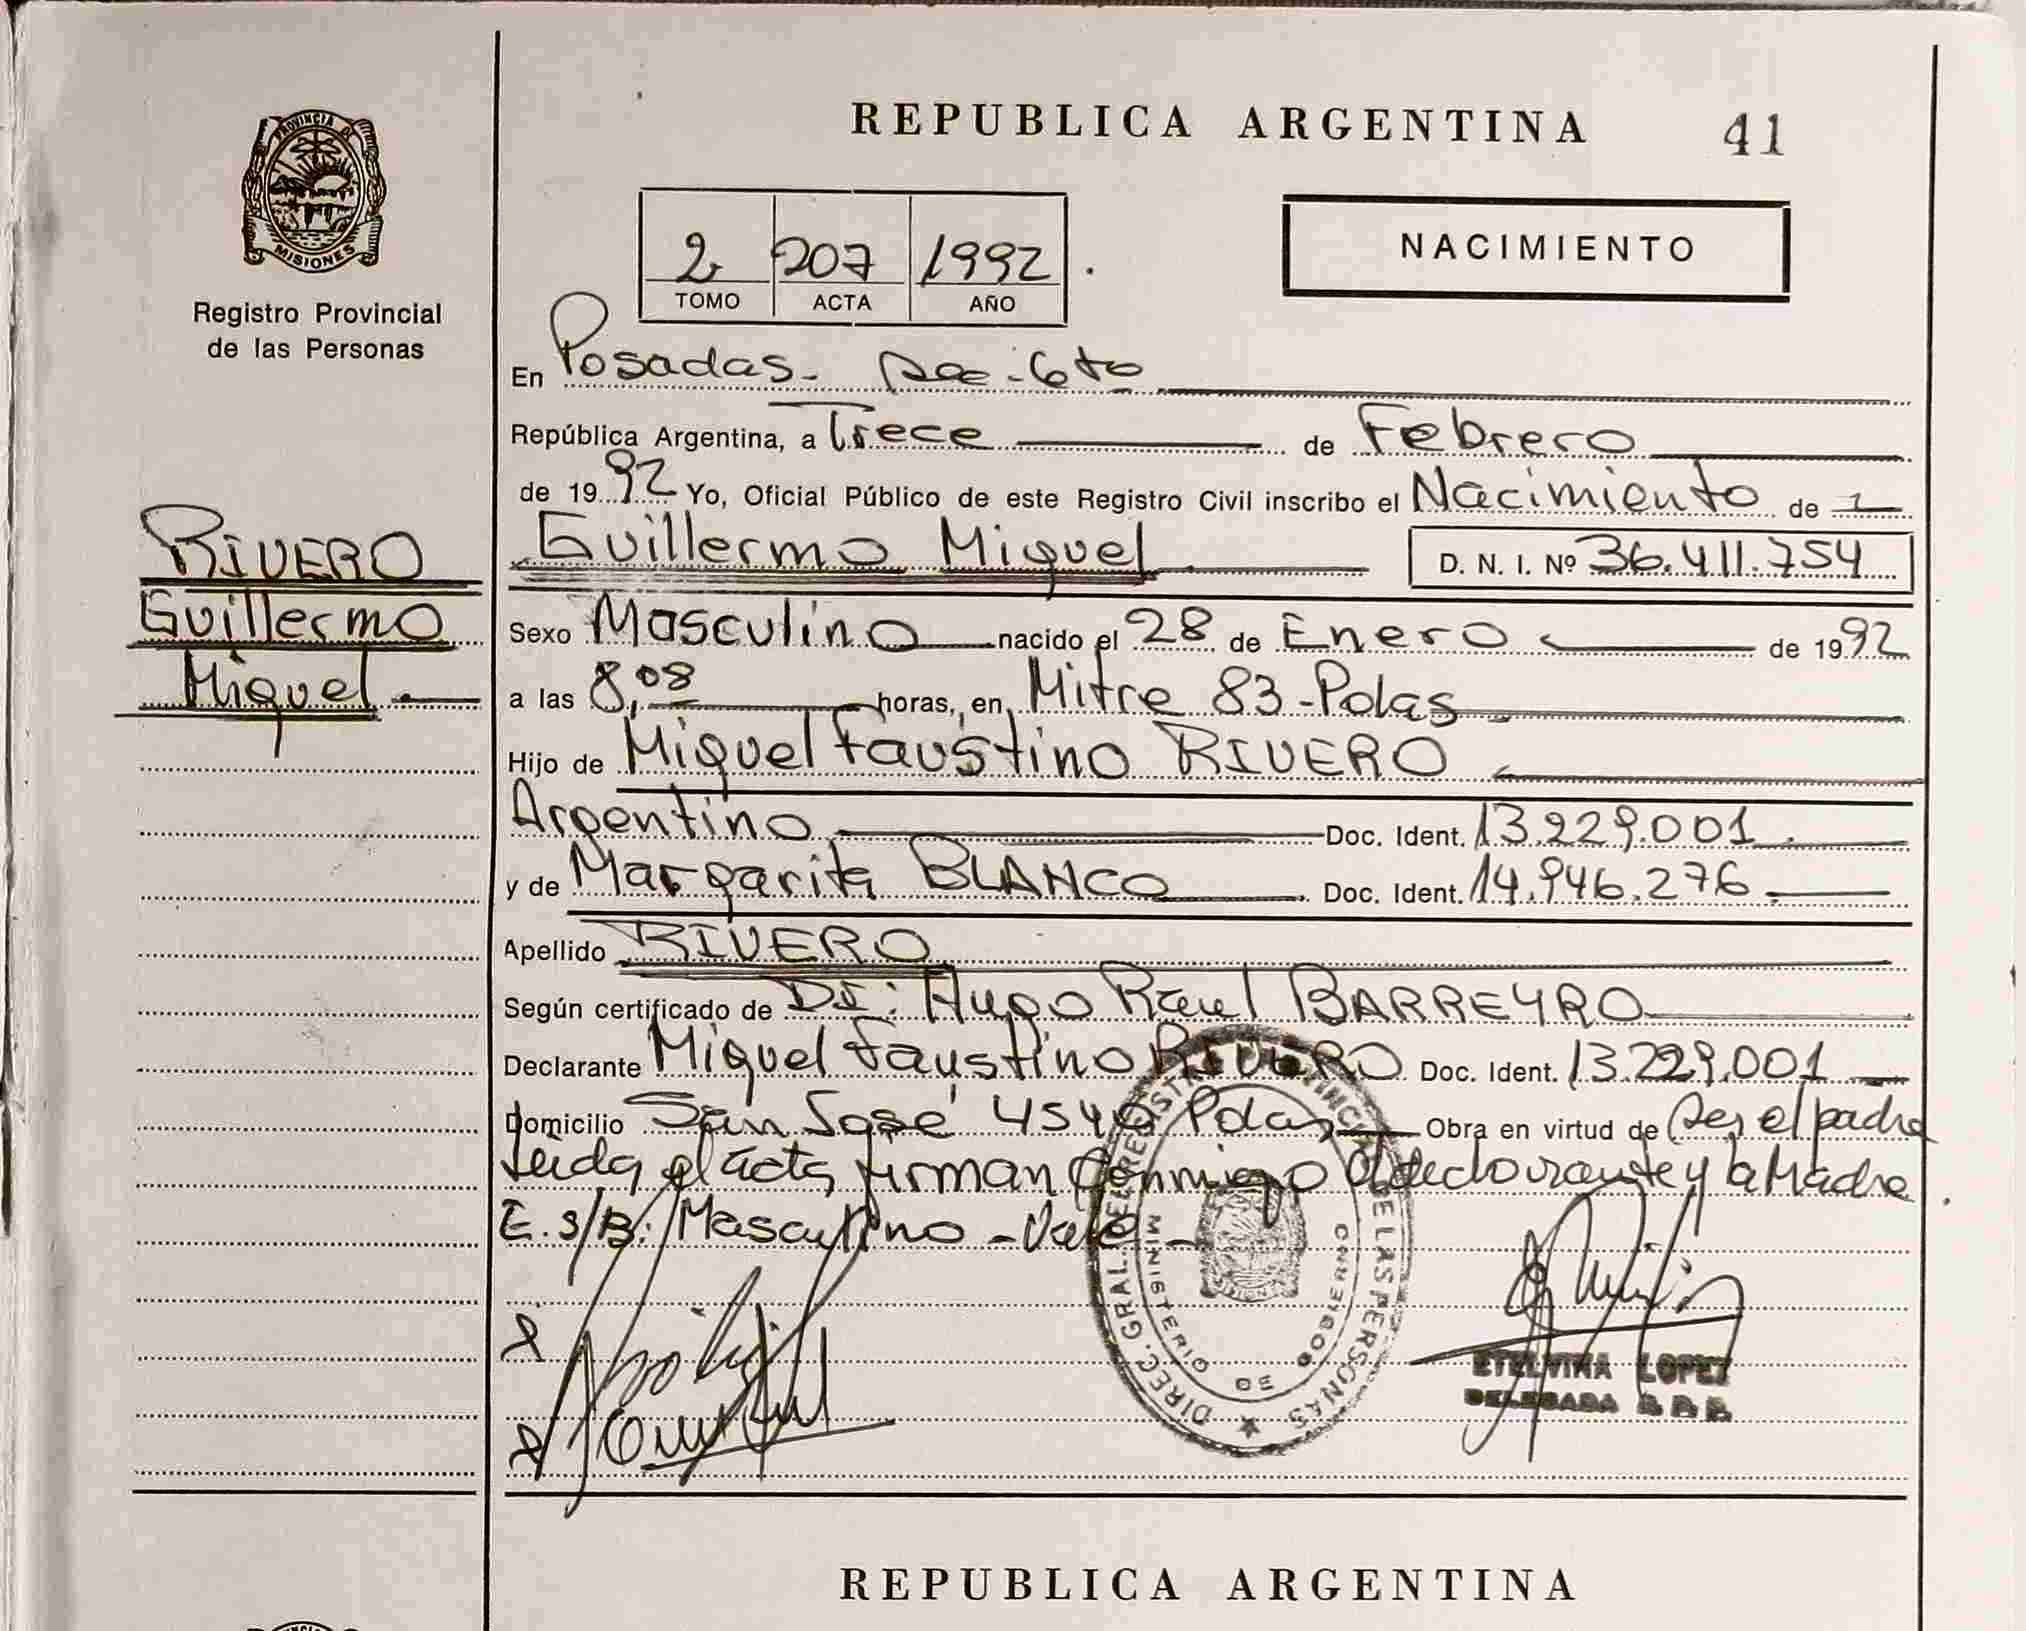 REPUBLICA ARGENTINA 41
PROVINCIA DE
MISIONES
Registro Provincial
de las Personas
2 207 1992
TOMO ACTA AÑO
NACIMIENTO
RIVERO
Guillermo
Miguel
En Posadas - Sec - 6to
República Argentina, a Trece de Febrero
de 1992 Yo, Oficial Público de este Registro Civil inscribo el Nacimiento de
Guillermo Miguel D. N. I. Nº 36.411.754
Sexo Masculino nacido el 28 de Enero de 1992
a las 8,08 horas, en Mitre 83 - Pdas
Hijo de Miguel Faustino RIVERO
Argentino Doc. Ident. 13.229.001
y de Margarita BLANCO Doc. Ident. 14.946.276
Apellido RIVERO
Según certificado de Dr: Hugo Raul BARREYRO
Declarante Miguel Faustino RIVERO Doc. Ident. 13.229.001
Domicilio San José 4540 Pdas Obra en virtud de Ser el padre
Leida el acta firman conmigo el declarante y la Madre
E. S/B: Masculino - Vale -
DIREC. GRAL. DEL REGISTRO PROVINCIAL DE LAS PERSONAS
MINISTERIO DE GOBIERNO
ETELVINA LOPEZ
DELEGADA
REPUBLICA ARGENTINA